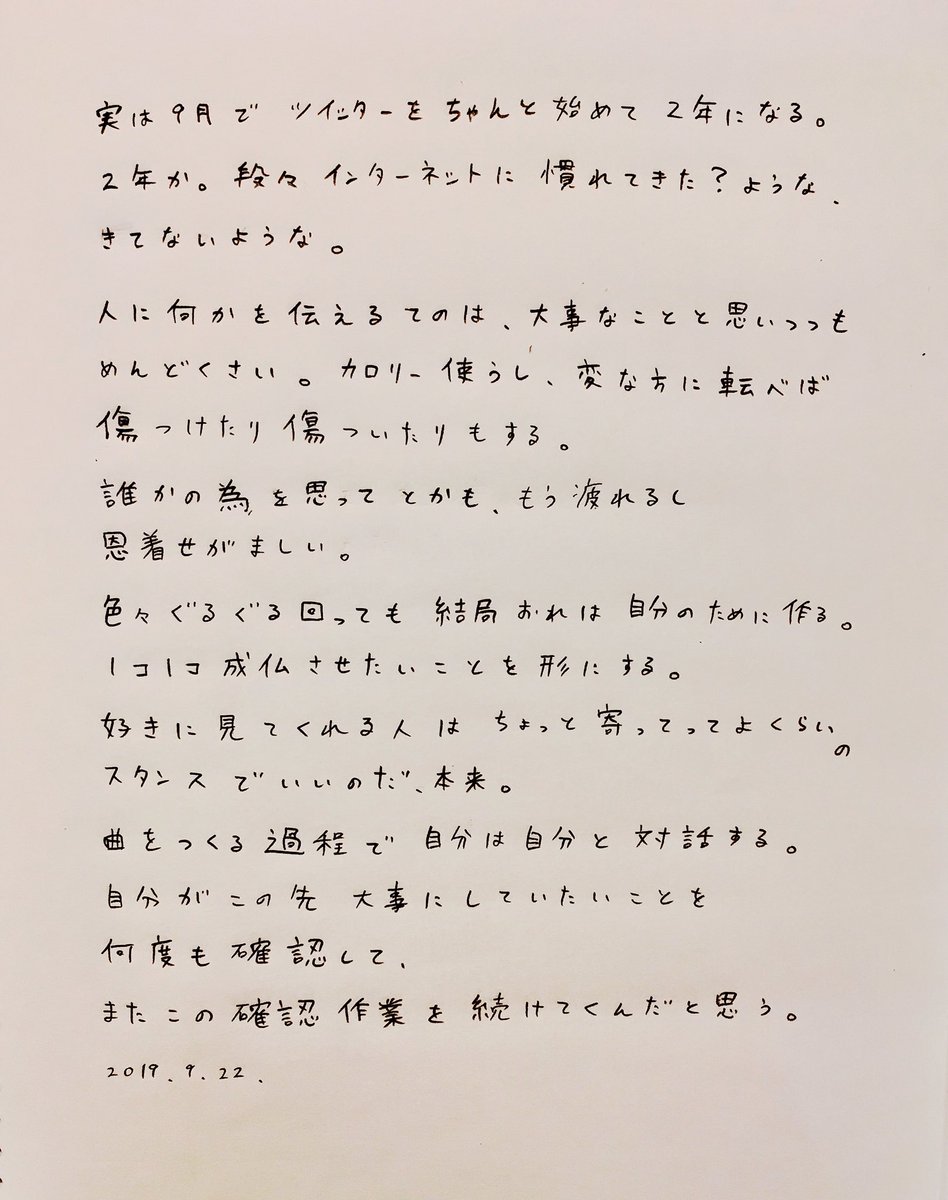 実は9月で ツイッターを ちゃんと始めて 2年になる。
2年か。段々 インターネットに 慣れてきた？ような、
きてないような。
人に何かを伝えるてのは、大事なことと思いつつも
めんどくさい。カロリー使うし、変な方に転べば
傷つけたり傷ついたりもする。
誰かの為を思ってとかも、もう疲れるし
恩着せがましい。
色々ぐるぐる回っても 結局おれは 自分のために作る。
1コ1コ成仏させたいことを形にする。
好きに見てくれる人は ちょっと寄ってってよくらいの
スタンスでいいのだ、本来。
曲をつくる過程で 自分は自分と 対話する。
自分がこの先 大事にしていたいことを
何度も確認して、
またこの確認作業を続けてくんだと思う。
2019.9.22.